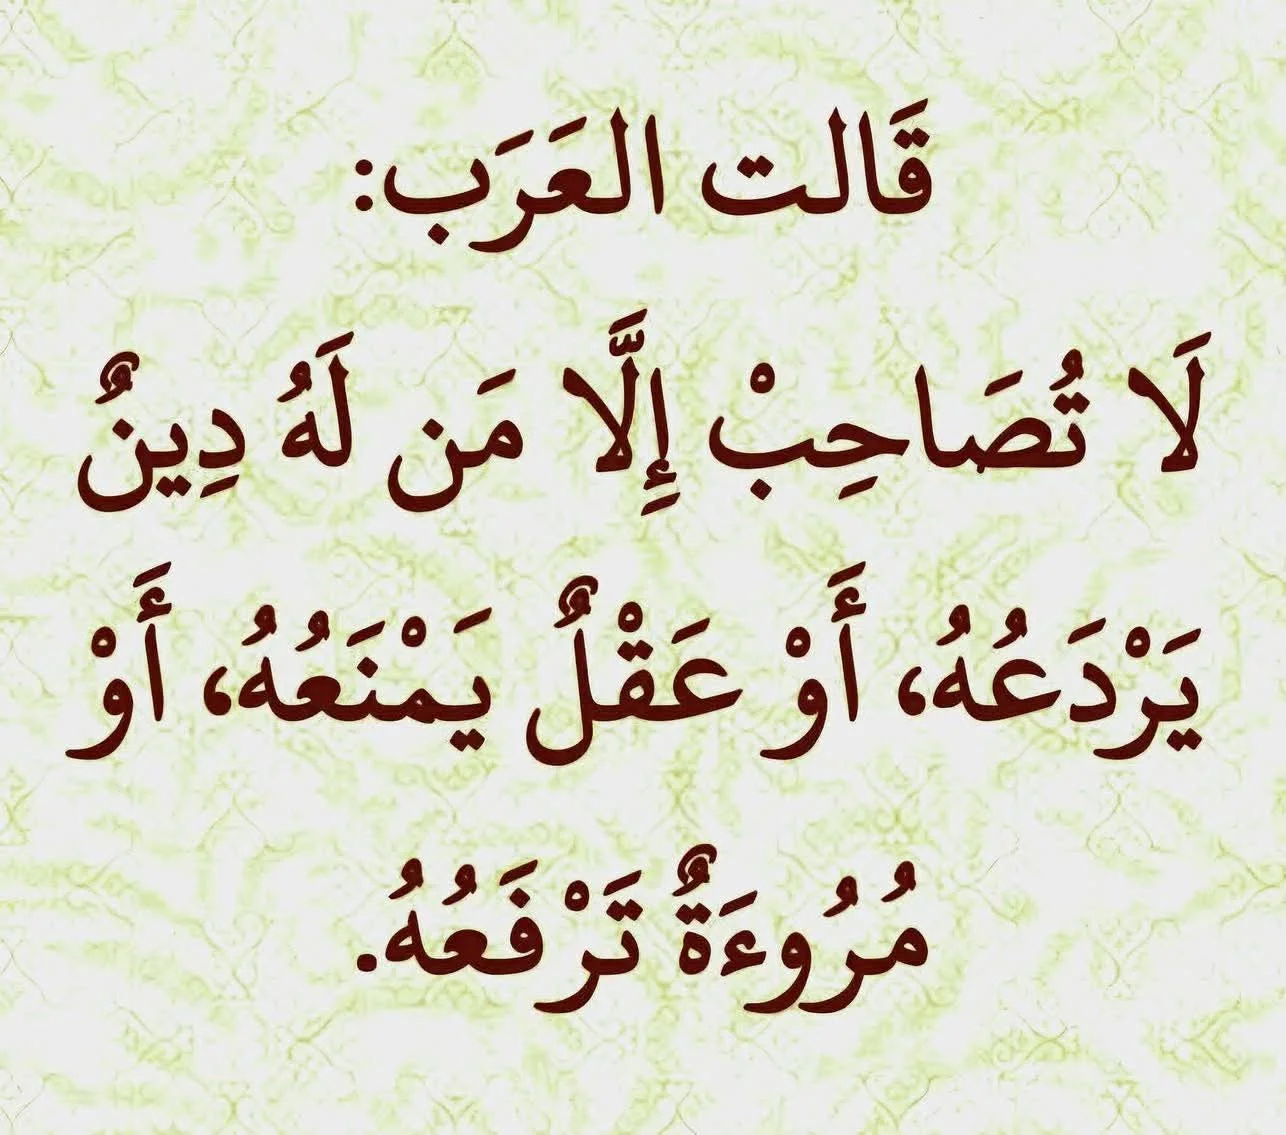 قَالت العَرَب:
لَا تُصَاحِبْ إِلَّا مَن لَهُ دِينٌ
يَرْدَعُهُ، أَوْ عَقْلٌ يَمْنَعُهُ، أَوْ
مُرُوءَةٌ تَرْفَعُهُ.